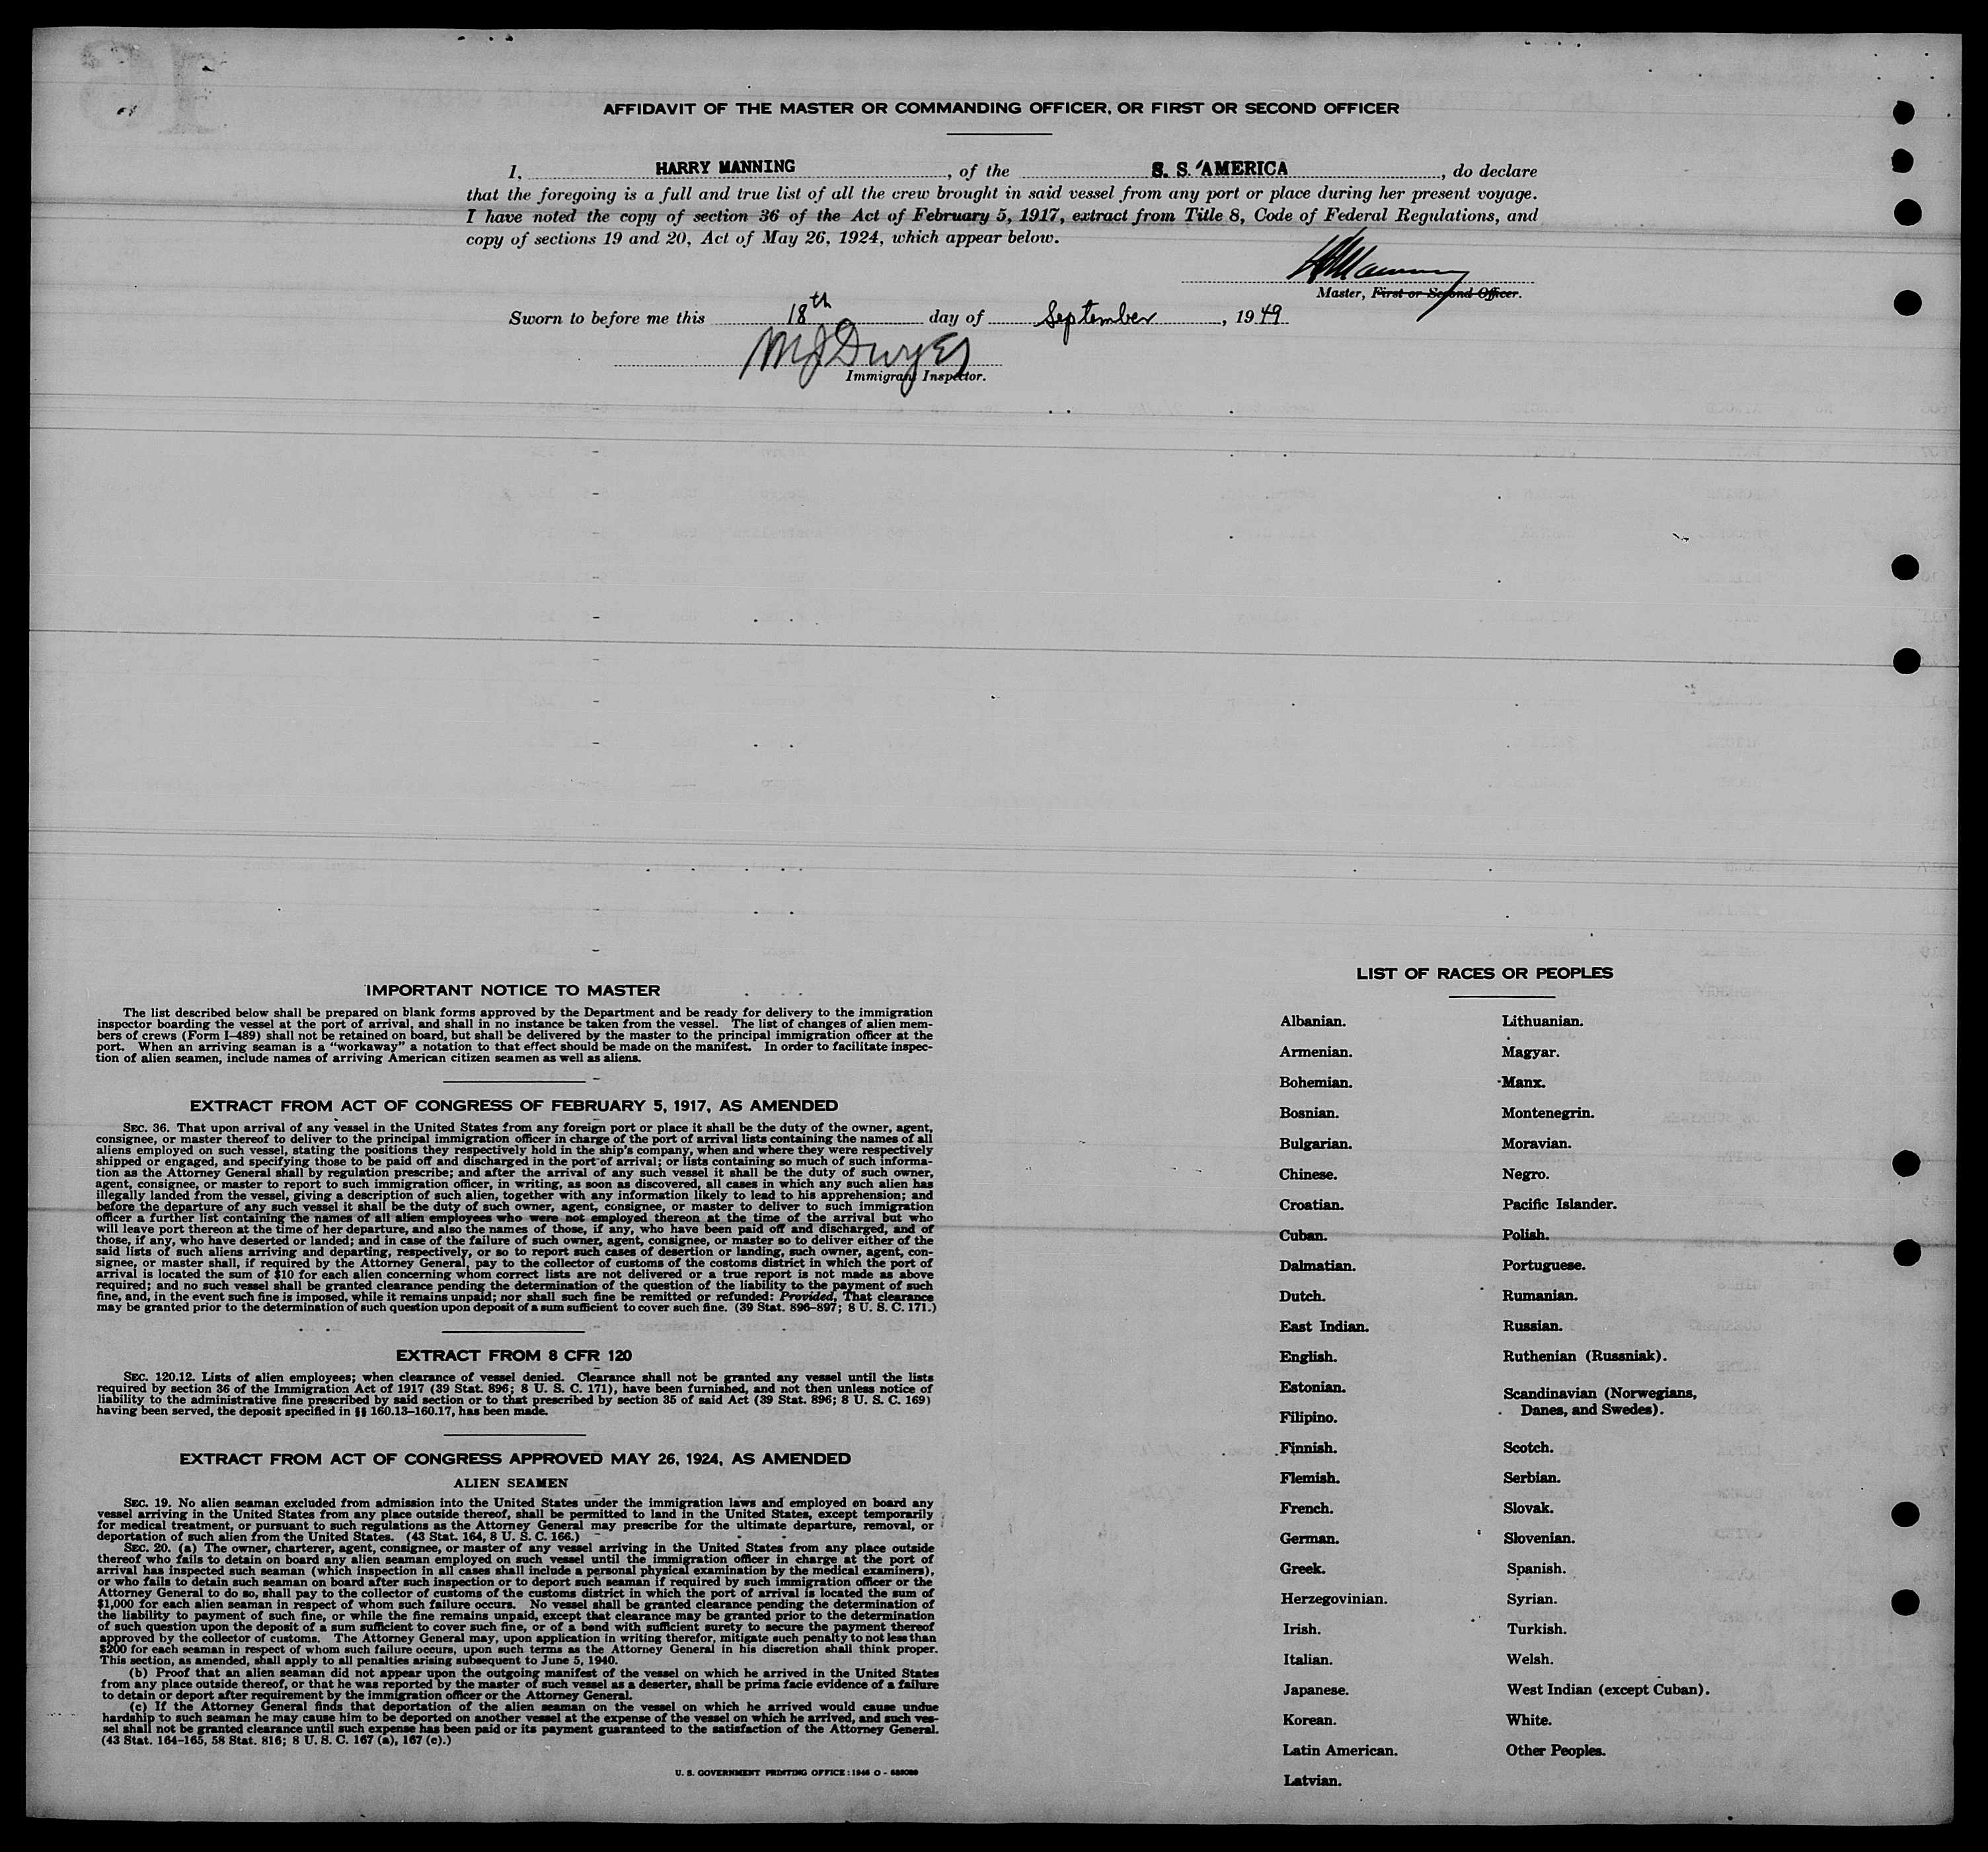 AFFIDAVIT OF THE MASTER OR COMMANDING OFFICER, OR FIRST OR SECOND OFFICER
I, HARRY MANNING, of the S. S. AMERICA, do declare
that the foregoing is a full and true list of all the crew brought in said vessel from any port or place during her present voyage.
I have noted the copy of section 36 of the Act of February 5, 1917, extract from Title 8, Code of Federal Regulations, and
copy of sections 19 and 20, Act of May 26, 1924, which appear below.
HManning
Master, First or Second Officer.
Sworn to before me this 18th day of September, 1949
MJ Dwyer
Immigrant Inspector.
IMPORTANT NOTICE TO MASTER
The list described below shall be prepared on blank forms approved by the Department and be ready for delivery to the immigration
inspector boarding the vessel at the port of arrival, and shall in no instance be taken from the vessel. The list of changes of alien mem-
bers of crews (Form I-489) shall not be retained on board, but shall be delivered by the master to the principal immigration officer at the
port. When an arriving seaman is a "workaway" a notation to that effect should be made on the manifest. In order to facilitate inspec-
tion of alien seamen, include names of arriving American citizen seamen as well as aliens.
EXTRACT FROM ACT OF CONGRESS OF FEBRUARY 5, 1917, AS AMENDED
SEC. 36. That upon arrival of any vessel in the United States from any foreign port or place it shall be the duty of the owner, agent,
consignee, or master thereof to deliver to the principal immigration officer in charge of the port of arrival lists containing the names of all
aliens employed on such vessel, stating the positions they respectively hold in the ship's company, when and where they were respectively
shipped or engaged, and specifying those to be paid off and discharged in the port of arrival; or lists containing so much of such informa-
tion as the Attorney General shall by regulation prescribe; and after the arrival of any such vessel it shall be the duty of such owner,
agent, consignee, or master to report to such immigration officer, in writing, as soon as discovered, all cases in which any such alien has
illegally landed from the vessel, giving a description of such alien, together with any information likely to lead to his apprehension; and
before the departure of any such vessel it shall be the duty of such owner, agent, consignee, or master to deliver to such immigration
officer a further list containing the names of all alien employees who were not employed thereon at the time of the arrival but who
will leave port thereon at the time of her departure, and also the names of those, if any, who have been paid off and discharged, and of
those, if any, who have deserted or landed; and in case of the failure of such owner, agent, consignee, or master so to deliver either of the
said lists of such aliens arriving and departing, respectively, or so to report such cases of desertion or landing, such owner, agent, con-
signee, or master shall, if required by the Attorney General, pay to the collector of customs of the costoms district in which the port of
arrival is located the sum of $10 for each alien concerning whom correct lists are not delivered or a true report is not made as above
required; and no such vessel shall be granted clearance pending the determination of the question of the liability to the payment of such
fine, and, in the event such fine is imposed, while it remains unpaid; nor shall such fine be remitted or refunded: Provided, That clearance
may be granted prior to the determination of such question upon deposit of a sum sufficient to cover such fine. (39 Stat. 896-897; 8 U. S. C. 171.)
EXTRACT FROM 8 CFR 120
SEC. 120.12. Lists of alien employees; when clearance of vessel denied. Clearance shall not be granted any vessel until the lists
required by section 36 of the Immigration Act of 1917 (39 Stat. 896; 8 U. S. C. 171), have been furnished, and not then unless notice of
liability to the administrative fine prescribed by said section or to that prescribed by section 35 of said Act (39 Stat. 896; 8 U. S. C. 169)
having been served, the deposit specified in §§ 160.13-160.17, has been made.
EXTRACT FROM ACT OF CONGRESS APPROVED MAY 26, 1924, AS AMENDED
ALIEN SEAMEN
SEC. 19. No alien seaman excluded from admission into the United States under the immigration laws and employed on board any
vessel arriving in the United States from any place outside thereof, shall be permitted to land in the United States, except temporarily
for medical treatment, or pursuant to such regulations as the Attorney General may prescribe for the ultimate departure, removal, or
deportation of such alien from the United States. (43 Stat. 164, 8 U. S. C. 166.)
SEC. 20. (a) The owner, charterer, agent, consignee, or master of any vessel arriving in the United States from any place outside
thereof who fails to detain on board any alien seaman employed on such vessel until the immigration officer in charge at the port of
arrival has inspected such seaman (which inspection in all cases shall include a personal physical examination by the medical examiners),
or who fails to detain such seaman on board after such inspection or to deport such seaman if required by such immigration officer or the
Attorney General to do so, shall pay to the collector of customs of the customs district in which the port of arrival is located the sum of
$1,000 for each alien seaman in respect of whom such failure occurs. No vessel shall be granted clearance pending the determination of
the liability to payment of such fine, or while the fine remains unpaid, except that clearance may be granted prior to the determination
of such question upon the deposit of a sum sufficient to cover such fine, or of a bend with sufficient surety to secure the payment thereof
approved by the collector of customs. The Attorney General may, upon application in writing therefor, mitigate such penalty to not less than
$200 for each seaman in respect of whom such failure occurs, upon such terms as the Attorney General in his discretion shall think proper.
This section, as amended, shall apply to all penalties arising subsequent to June 5, 1940.
(b) Proof that an alien seaman did not appear upon the outgoing manifest of the vessel on which he arrived in the United States
from any place outside thereof, or that he was reported by the master of such vessel as a deserter, shall be prima facie evidence of a failure
to detain or deport after requirement by the immigration officer or the Attorney General.
(c) If the Attorney General finds that deportation of the alien seaman on the vessel on which he arrived would cause undue
hardship to such seaman he may cause him to be deported on another vessel at the expense of the vessel on which he arrived, and such ves-
sel shall not be granted clearance until such expense has been paid or its payment guaranteed to the satisfaction of the Attorney General.
(43 Stat. 164-165, 58 Stat. 816; 8 U. S. C. 167 (a), 167 (c).)
U. S. GOVERNMENT PRINTING OFFICE: 1946 O -
LIST OF RACES OR PEOPLES
Albanian.
Armenian.
Bohemian.
Bosnian.
Bulgarian.
Chinese.
Croatian.
Cuban.
Dalmatian.
Dutch.
East Indian.
English.
Estonian.
Filipino.
Finnish.
Flemish.
French.
German.
Greek.
Herzegovinian.
Irish.
Italian.
Japanese.
Korean.
Latin American.
Latvian.
Lithuanian.
Magyar.
Manx.
Montenegrin.
Moravian.
Negro.
Pacific Islander.
Polish.
Portuguese.
Rumanian.
Russian.
Ruthenian (Russniak).
Scandinavian (Norwegians,
Danes, and Swedes).
Scotch.
Serbian.
Slovak.
Slovenian.
Spanish.
Syrian.
Turkish.
Welsh.
West Indian (except Cuban).
White.
Other Peoples.